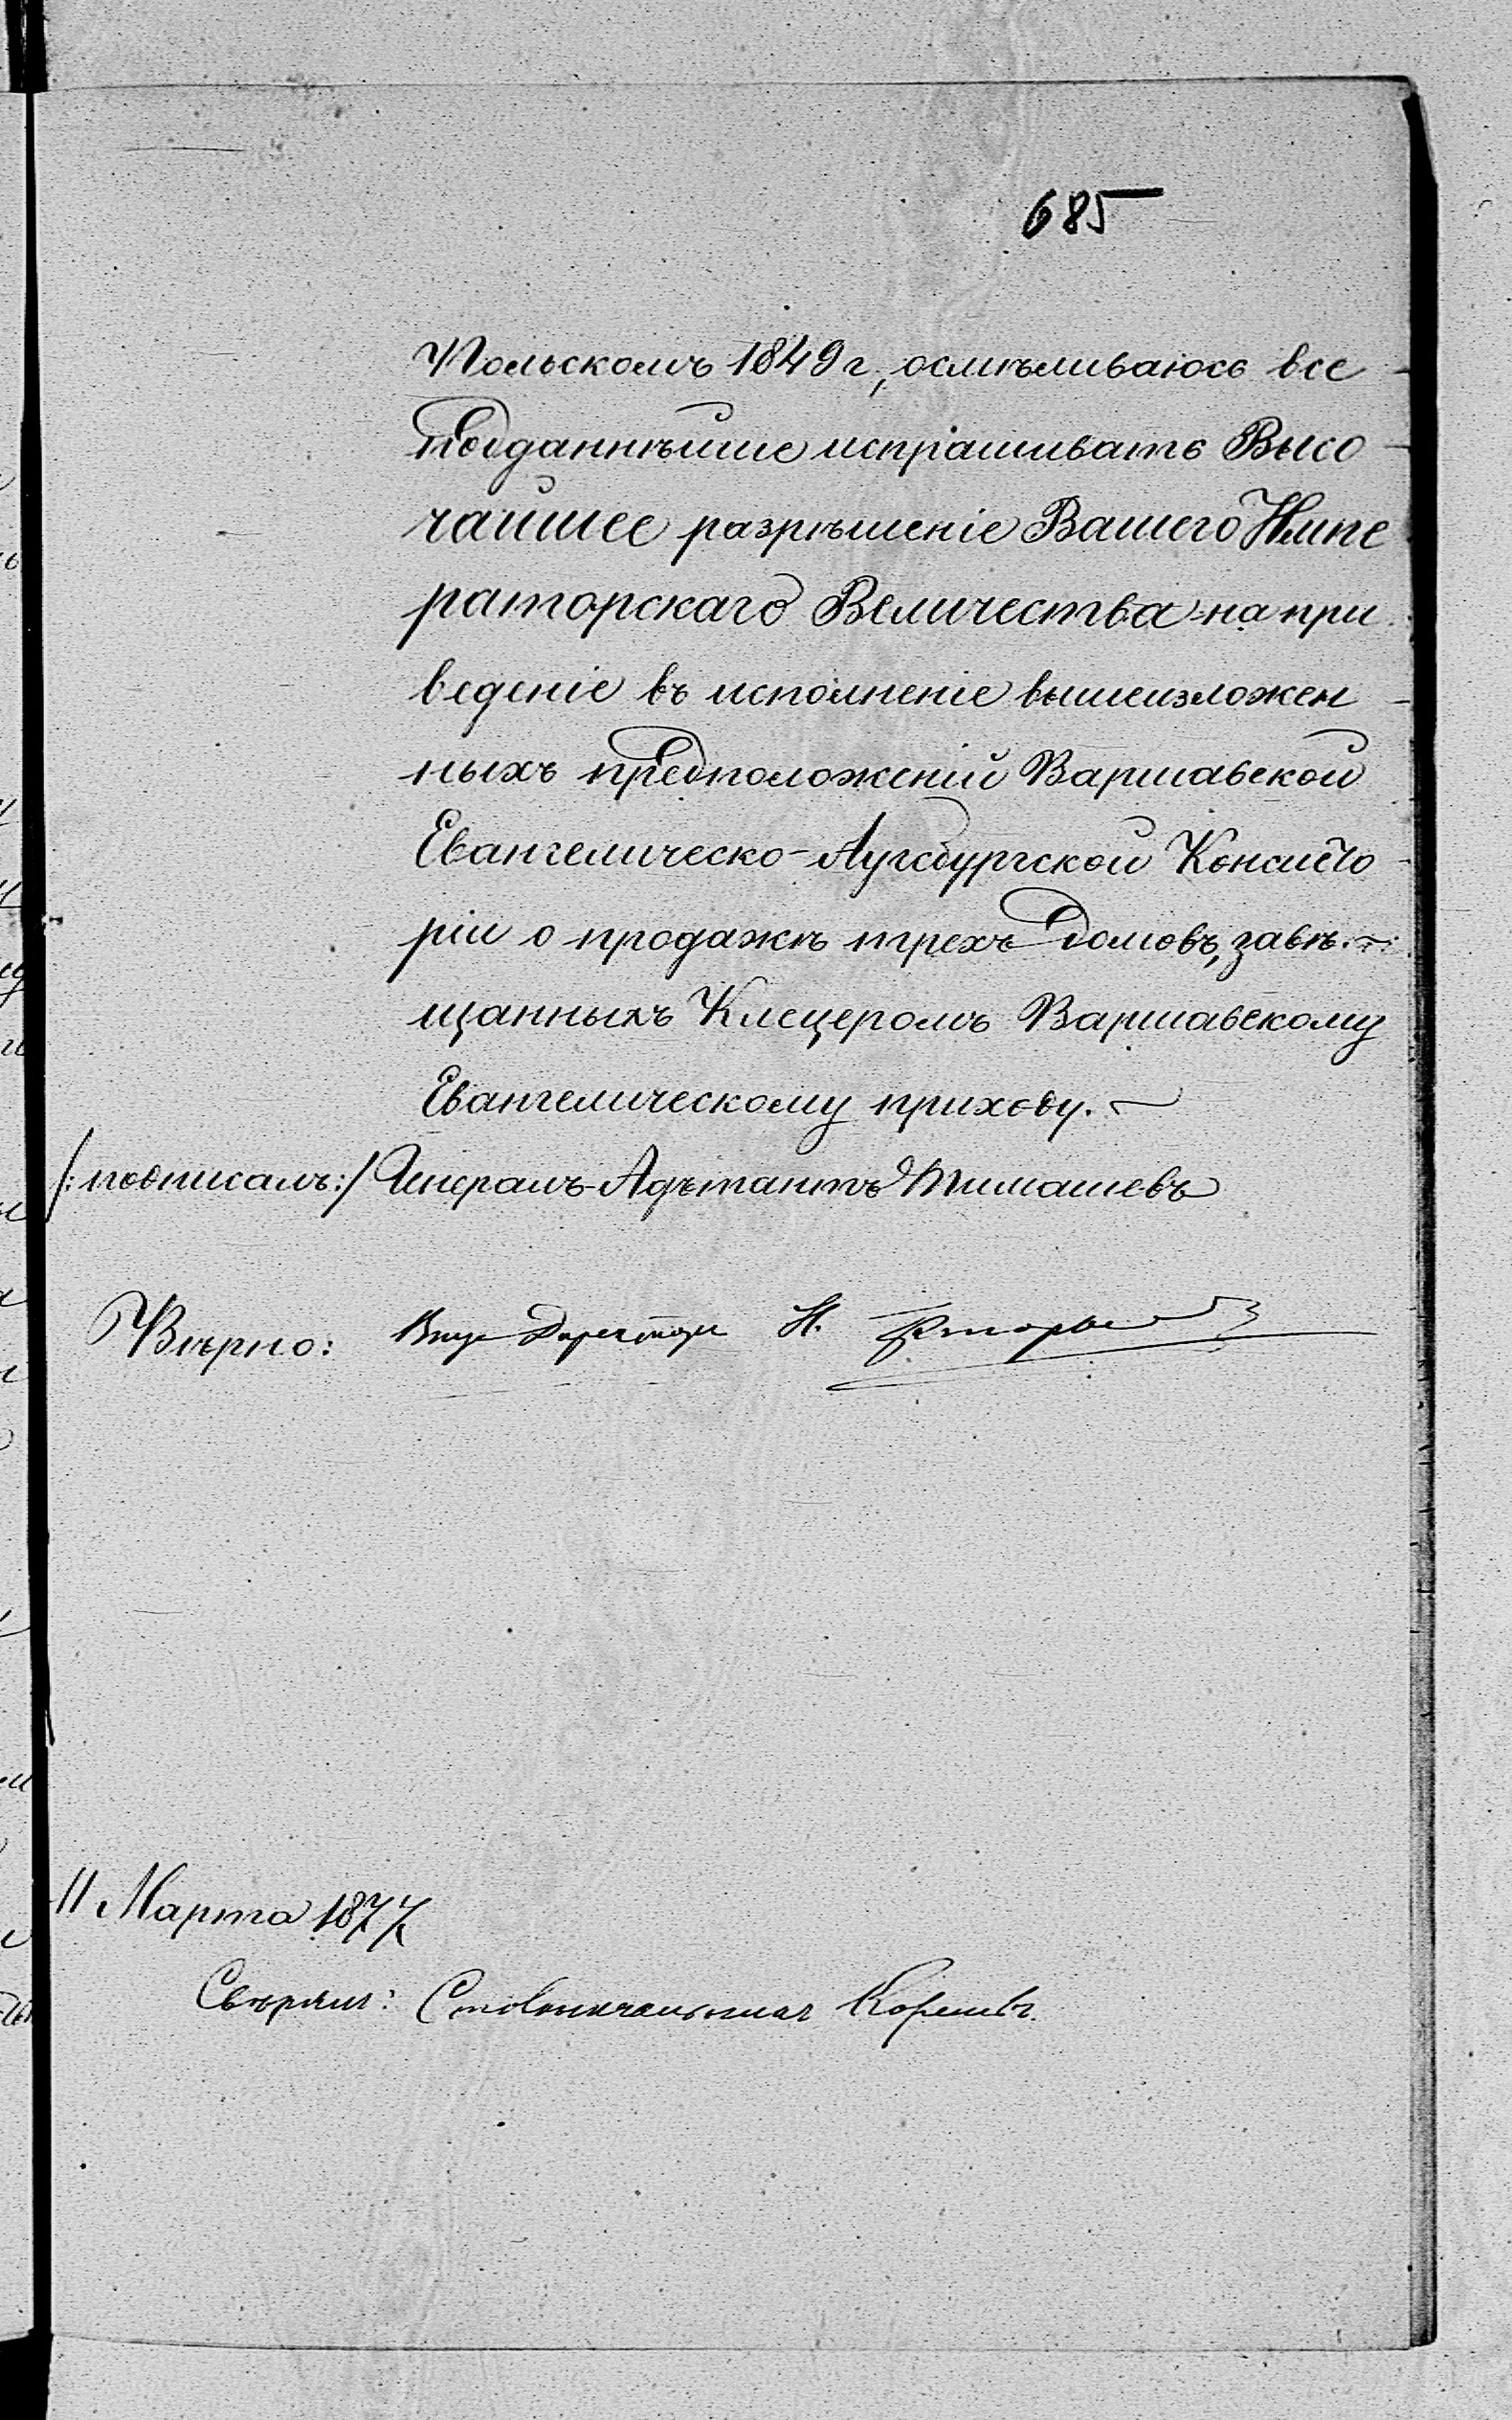 685
Польскомъ 1849 г., осмѣливаюсь все-
подданнѣйше испрашивать Высо-
чайшее разрѣшеніе Вашего Импе
раторскаго Величества на при-
веденіе въ исполненіе вышеизложен-
ныхъ предположеній Варшавской
Евангелическо-Аугсбургской Консисто-
ріи о продажѣ трехъ домовъ, завѣ-
щанныхъ Клецеромъ Варшавскому
Евангелическому приходу.
/:подписалъ:/ Генералъ-Адъютантъ Тимашевъ
Вѣрно: Вице Директоръ Н.
11 Марта 1877
Свѣрялъ: Столоначальникъ